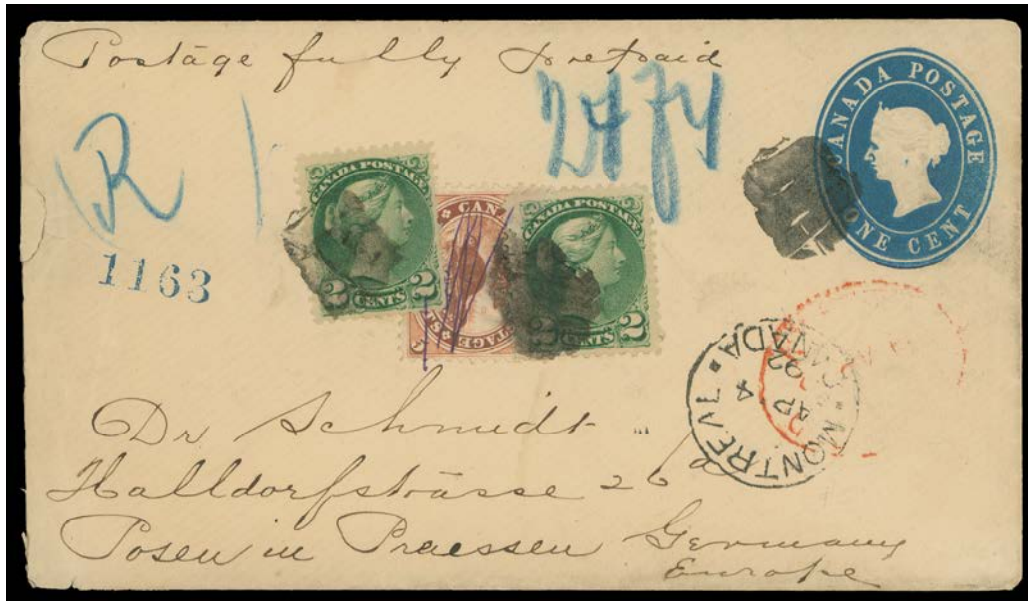 Postage fully prepaid
CANADA POSTAGE
ONE CENT
R
1163
CANADA POSTAGE
2 CENTS 2
CAN
POSTAGE
CANADA POSTAGE
2 CENTS 2
MONTREAL
CANADA
AP 4
92
Dr Schmidt
Halldorfstrasse 26a
Posen in Praessen Germany
Europe